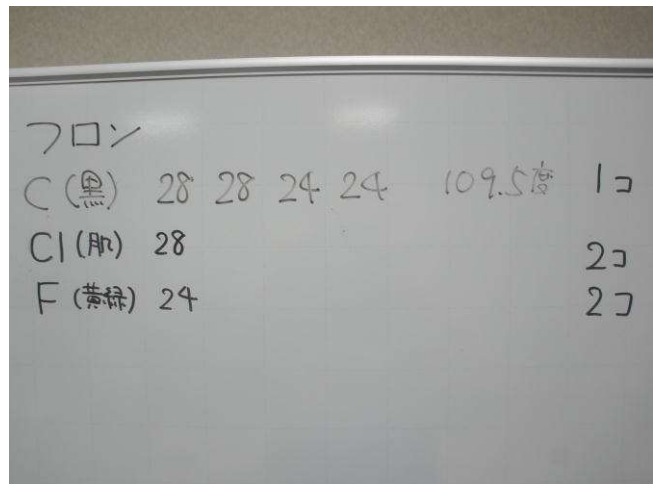 フロン
C(黒) 28 28 24 24 109.5度 1コ
Cl(肌) 28 2コ
F(黄緑) 24 2コ